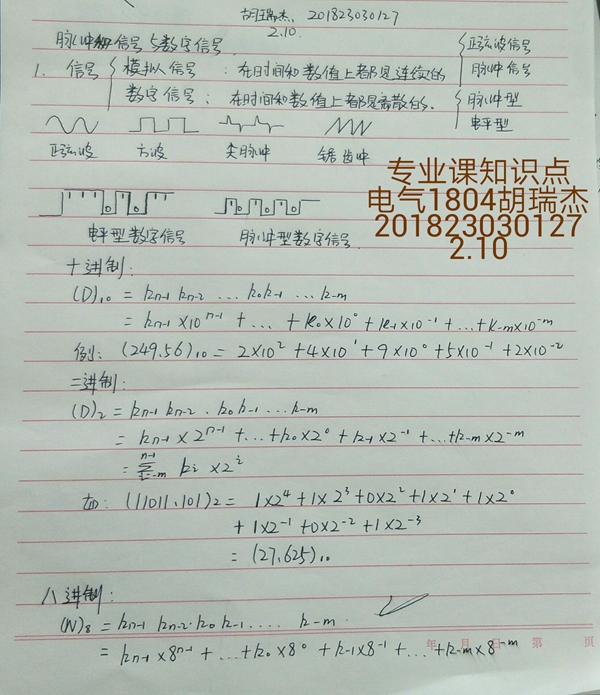 胡瑞杰. 201823030127
2.10.
脉冲信号与数字信号.
1. 信号 { 模拟信号 : 在时间和数值上都是连续的 { 正弦波信号 脉冲信号
数字信号 : 在时间和数值上都是离散的. { 脉冲型 电平型
正弦波 方波 尖脉冲 锯齿冲
专业课知识点
电气1804胡瑞杰
201823030127
2.10
电平型数字信号 脉冲型数字信号.
十进制:
(D)₁₀ = kn-1 kn-2 ... k0k-1 ... k-m
= kn-1 ×10ⁿ⁻¹ + ... + k0×10⁰ + k-1×10⁻¹ + ... + k-m×10⁻ᵐ
例: (249.56)₁₀ = 2×10² + 4×10¹ + 9×10⁰ + 5×10⁻¹ + 2×10⁻²
二进制:
(D)₂ = kn-1 kn-2 . k0 k-1 ... k-m
= kn-1 × 2ⁿ⁻¹ + ... + k0×2⁰ + k-1×2⁻¹ + ... + k-m×2⁻ᵐ
= Σ ki ×2ⁱ
如: (11011.101)₂ = 1×2⁴ + 1×2³ + 0×2² + 1×2¹ + 1×2⁰
+ 1×2⁻¹ + 0×2⁻² + 1×2⁻³
= (27.625)₁₀
八进制:
(N)₈ = kn-1 kn-2. k0 k-1 .... k-m.
年 月 日 第 页
= kn-1 ×8ⁿ⁻¹ + ... + k0 ×8⁰ + k-1×8⁻¹ + ... + k-m×8⁻ᵐ